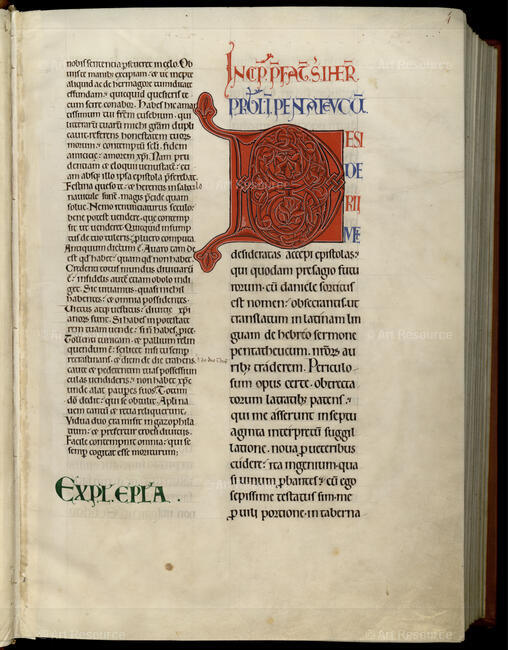 nobis sententia pscuere in eglo. Ob
uiis te manib; excipiam. & ut inepte
aliquid ac de hermagore tumiditate
effundam. quicquid quesieris te
cum scire conabor. Habes hic aman
tissimum tui frem eusebium. qui
litteraru tuaru michi gram dupli
cauit. referens honestatem tuoru
morum. contemptu scli. fidem
amicicie. amorem xpi. Nam pru
dentiam & eloquii uenustate. eti
am absq; illo ipsa epistola pferebat.
Festina queso te. & herentis in salo
nauicule fune. magis pcide quam
solue. Nemo renunciaturus seculo
bene potest uendere. que contemp
sit ut uenderet. Quicquid in sump
tus de tuo tuleris. p lucro computa.
Antiquum dictum e. Auaro tam de
est qd habet. quam qd non habet.
Credenti totus mundus diuiciaru
e. infidelis aute etiam obolo indi
get. Sic uiuamus. quasi nichil
habentes. & omnia possidentes.
Victus & uestitus. diuitie xpi
anoru sunt. Si habes in potestate
rem tuam uende. si n habes. pice.
Tollenti tunicam. & pallium relin
quendum e. Scilicet nisi tu semp
recrastinans. & diem de die trahens.
caute & pedetentim tuas possessiun
culas uendideris. non habet xpc
unde alat paupes suos. Totum
do dedit. qui se obtulit. Apli na
uem tantu & retia reliquerunt.
Vidua duo era misit in gazophila
tium. & prefertur cresi diuiciis.
Facile contempnit omnia. qui se
semp cogitat esse moriturum.
EXPL. EPLA.
INCIP. PFATS. IHER.
PROLI. PENTATEUCU.
DESI
DE
RII
ME
desideratas accepi epistolas.
qui quodam presagio futu
rorum. cu daniele sortitus
est nomen. obsecrantis. ut
translatum in latinam lin
guam de hebreo sermone
pentatheucum. nroru au
rib; traderem. Periculo
sum opus certe. obtrecta
torum latratib; patens.
qui me asserunt in septu
aginta interpretu suggil
latione. noua p ueteribus
cudere. ita ingenium qua
si uinum pbantes. cu ego
sepissime testatus sim. me
p uili portione. in taberna
© Art Resource
© Art Resource
© Art Resource
© Art Resource